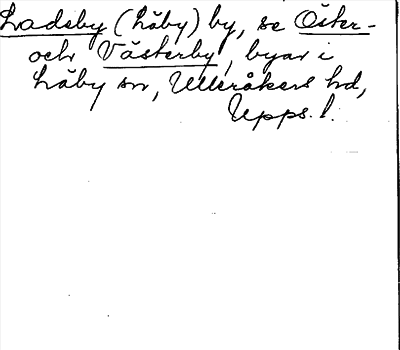 Ladsby (Läby) by, se Öster-
och Västerby, byar i
Läby sn, Ulleråkers hd,
Upps. l.